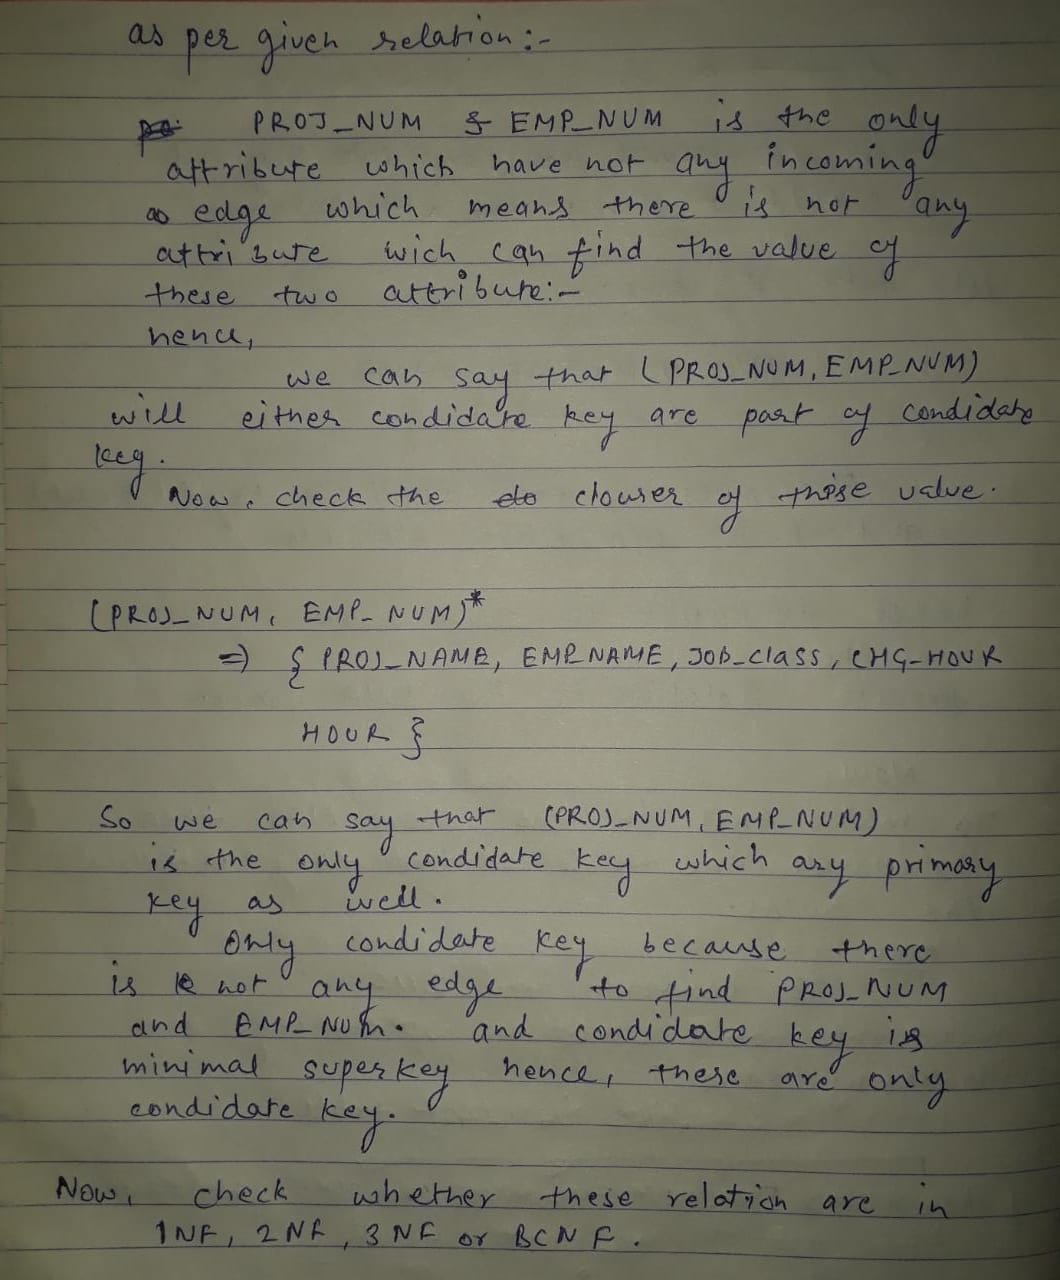 as per given relation :-
PROJ_NUM & EMP_NUM is the only
attribute which have not any incoming
edge which means there is not any
attribute wich can find the value of
these two attribute:-
hence,
we can say that (PROJ_NUM, EMP_NUM)
will either condidate key are part of condidate
key.
Now, check the clouser of these value.
(PROJ_NUM, EMP_NUM)*
=> { PROJ_NAME, EMP_NAME, JOB_class, CHG-HOUR
HOUR }
So we can say that (PROJ_NUM, EMP_NUM)
is the only condidate key which any primary
key as well.
Only condidate key because there
is not any edge to find PROJ_NUM
and EMP_NUM. and condidate key is
minimal superkey hence, these are only
condidate key.
Now, check whether these relation are in
1NF, 2NF, 3NF or BCNF.